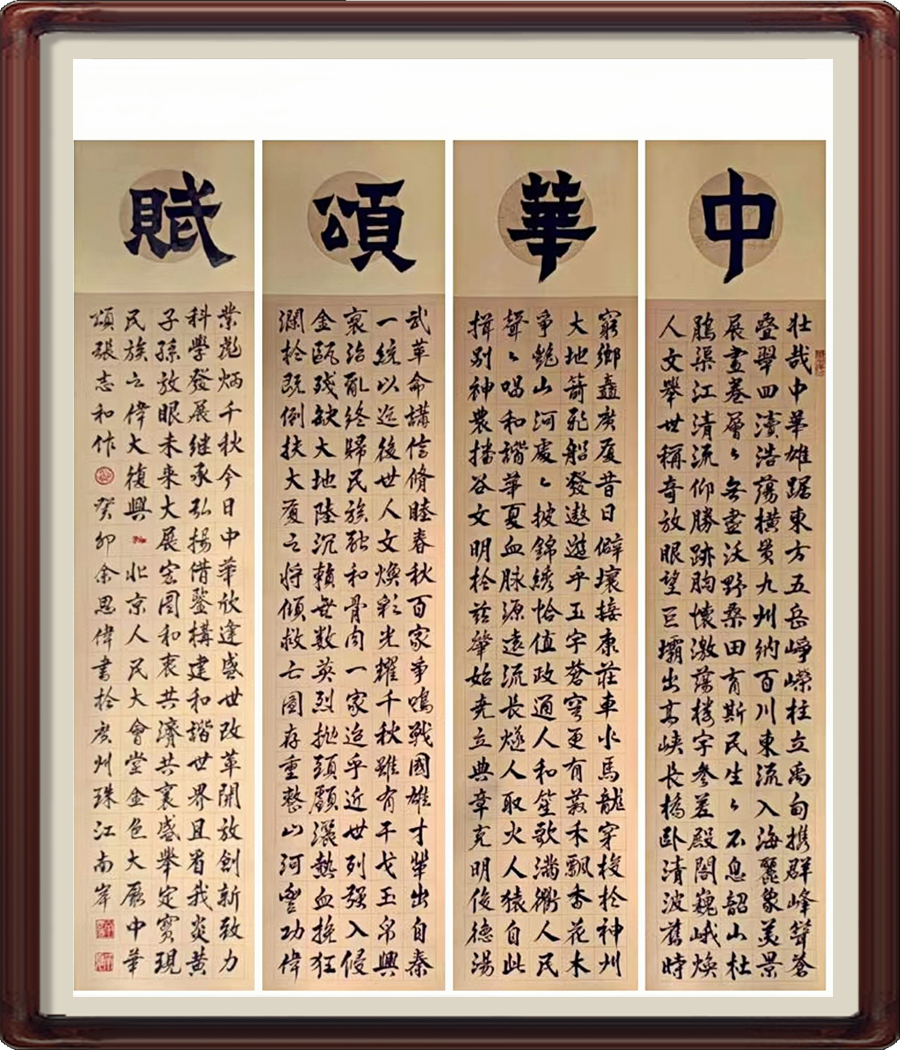 中華頌賦
壮哉中華雄踞東方五岳崢嶸柱立禹甸携群峰聳蒼
疊翠四瀆浩蕩横貫九州納百川東流入海麗象美景
展畫卷層々無盡沃野桑田育斯民生々不息韶山杜
鵑渠江清流仰勝跡胸懷激蕩楼宇参差殿閣巍峨焕
人文舉世稱奇放眼望巨壩出高峡長橋卧清波舊時
窮鄉矗廣厦昔日僻壤接康莊車水馬龍穿梭於神州
大地箭飛船發遨遊乎玉宇蒼穹更有禾飄香花木
争艶山河處々披錦綉恰值政通人和笙歌满衢人民
聲々唱和諧華夏血脉源遠流長燧人取火人猿自此
揖别神農播谷文明於兹肇始堯立典章克明俊德湯
武革命講信脩睦春秋百家争鳴戰國雄才輩出自秦
一統以迄後世人文焕彩光耀千秋雖有干戈玉帛興
衰治亂終歸民族融和骨肉一家迨乎近世列强入侵
金甌残缺大地陸沉賴無数英烈抛頭顱灑熱血挽狂
瀾於既倒扶大厦之将傾救亡圖存重整山河豐功偉
業彪炳千秋今日中華欣逢盛世改革開放創新致力
科學發展继承弘揚借鑒構建和諧世界且看我炎黄
子孫放眼未来大展宏图和衷共濟共襄盛舉定實現
民族之偉大復興 北京人民大會堂金色大廳中華
頌張志和作 癸卯余思偉書於廣州珠江南岸